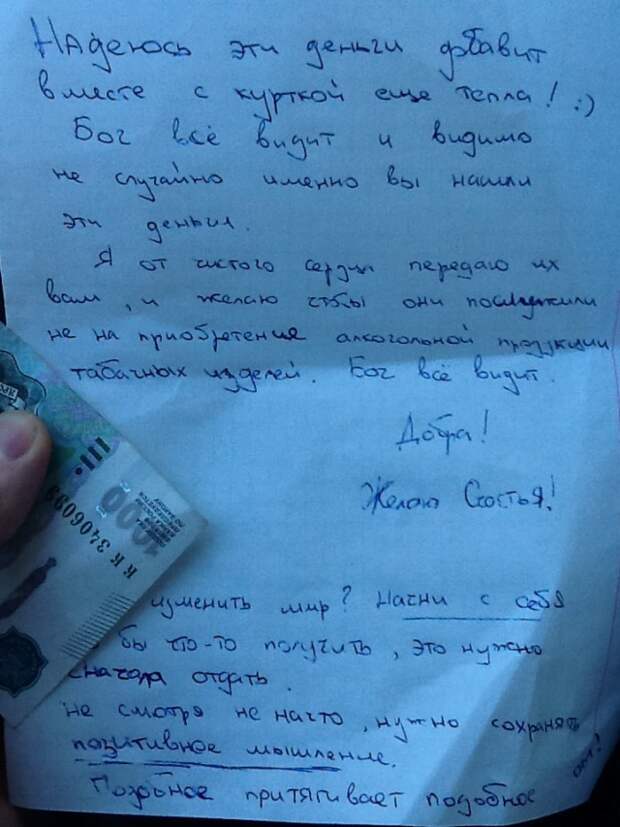 Надеюсь эти деньги добавит
вместе с курткой еще тепла! :)
Бог всё видит и видимо
не случайно именно вы нашли
эти деньги.
Я от чистого сердца передаю их
вам, и желаю чтобы они послужили
не на приобретение алкогольной продукции
табачных изделей. Бог всё видит.
Добра!
Желаю Счастья!
КК 3406099
1000
изменить мир? Начни с себя
бы что-то получить, это нужно
сначала отдать.
не смотря не начто, нужно сохранять
позитивное мышление.
Подобное притягивает подобное